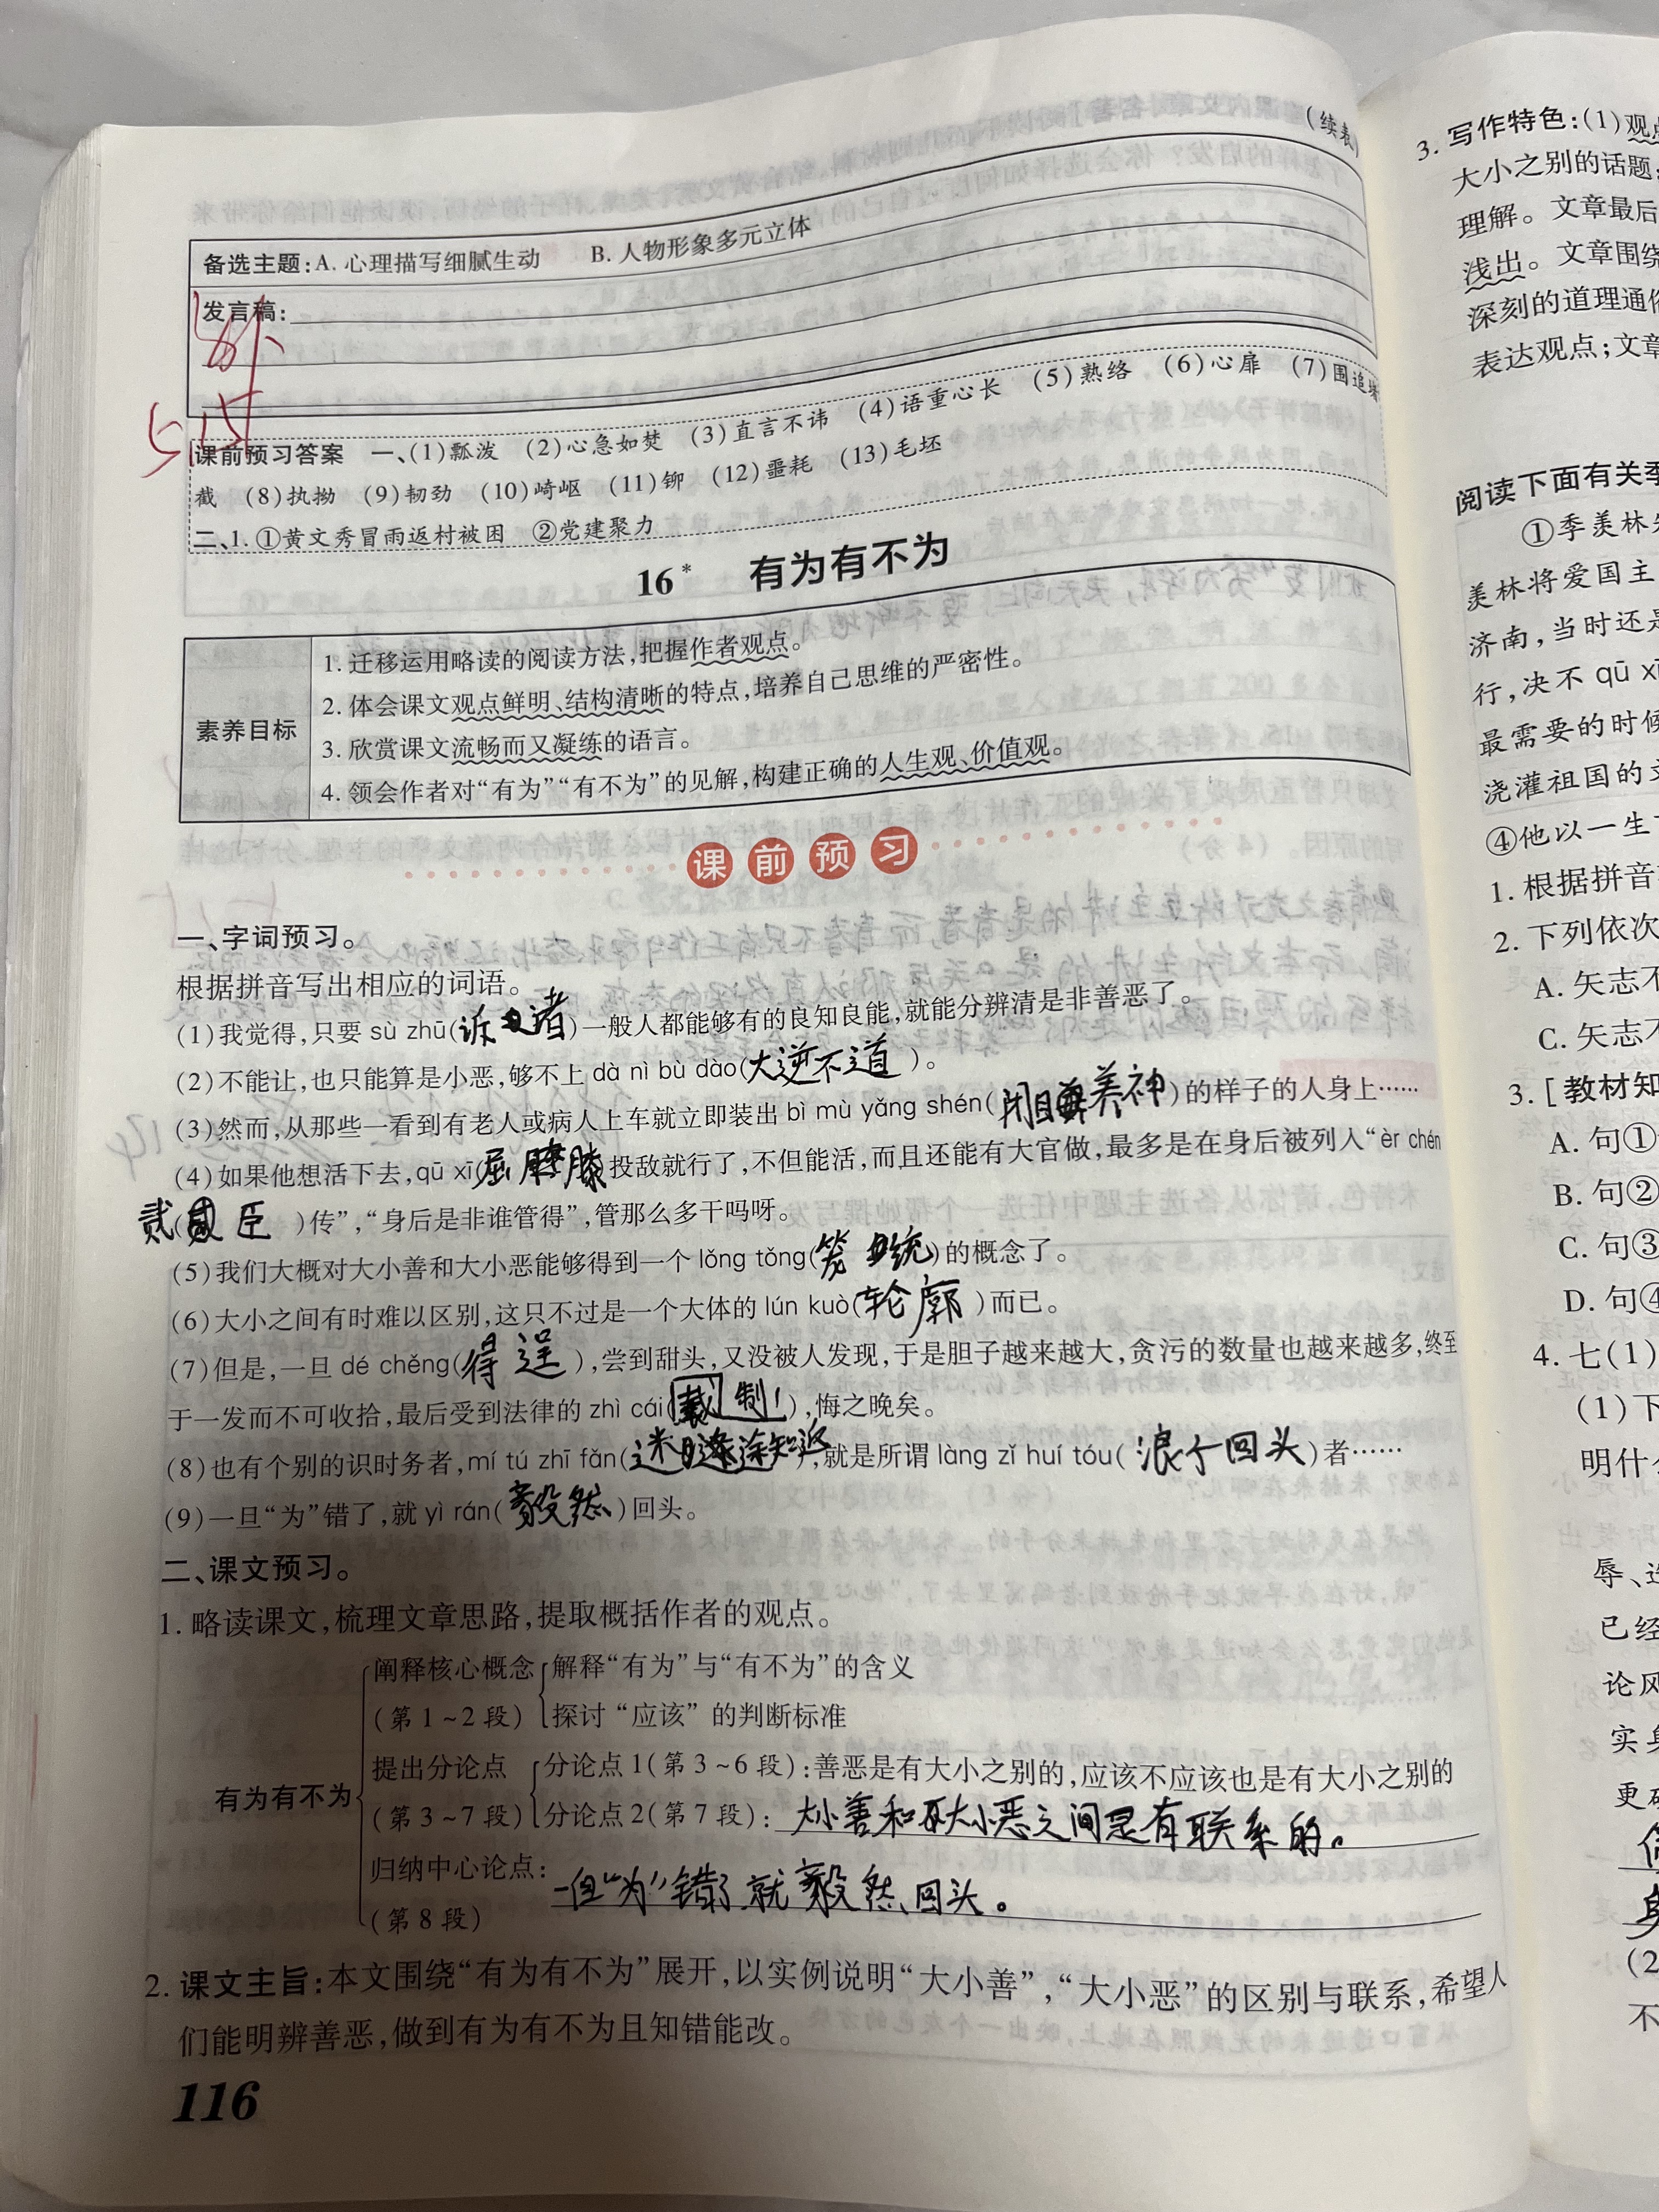 (续表)
备选主题:A. 心理描写细腻生动 B. 人物形象多元立体
发言稿:
5.15
课前预习答案 一、(1)瓢泼 (2)心急如焚 (3)直言不讳 (4)语重心长 (5)熟络 (6)心扉 (7)围追堵
截 (8)执拗 (9)韧劲 (10)崎岖 (11)铆 (12)噩耗 (13)毛坯
二、1. ①黄文秀冒雨返村被困 ②党建聚力
16* 有为有不为
素养目标
1. 迁移运用略读的阅读方法,把握作者观点。
2. 体会课文观点鲜明、结构清晰的特点,培养自己思维的严密性。
3. 欣赏课文流畅而又凝练的语言。
4. 领会作者对“有为”“有不为”的见解,构建正确的人生观、价值观。
课前预习
一、字词预习。
根据拼音写出相应的词语。
(1)我觉得,只要 sù zhū(诉诸)一般人都能够有的良知良能,就能分辨清是非善恶了。
(2)不能让,也只能算是小恶,够不上 dà nì bù dào(大逆不道)。
(3)然而,从那些一看到有老人或病人上车就立即装出 bì mù yǎng shén(闭目养神)的样子的人身上……
(4)如果他想活下去,qū xī(屈膝)投敌就行了,不但能活,而且还能有大官做,最多是在身后被列入“èr chén
(贰臣)传”,“身后是非谁管得”,管那么多干吗呀。
(5)我们大概对大小善和大小恶能够得到一个 lǒng tǒng(笼统)的概念了。
(6)大小之间有时难以区别,这只不过是一个大体的 lún kuò(轮廓)而已。
(7)但是,一旦 dé chěng(得逞),尝到甜头,又没被人发现,于是胆子越来越大,贪污的数量也越来越多,终至
于一发而不可收拾,最后受到法律的 zhì cái(裁制),悔之晚矣。
(8)也有个别的识时务者,mí tú zhī fǎn(迷途知返),就是所谓 làng zǐ huí tóu(浪子回头)者……
(9)一旦“为”错了,就 yì rán(毅然)回头。
二、课文预习。
1. 略读课文,梳理文章思路,提取概括作者的观点。
有为有不为
阐释核心概念
(第 1~2 段)
解释“有为”与“有不为”的含义
探讨“应该”的判断标准
提出分论点
(第 3~7 段)
分论点 1(第 3~6 段):善恶是有大小之别的,应该不应该也是有大小之别的
分论点 2(第 7 段):大小善和大小恶之间是有联系的。
归纳中心论点:
(第 8 段)
一旦“为”错了,就毅然回头。
2. 课文主旨:本文围绕“有为有不为”展开,以实例说明“大小善”,“大小恶”的区别与联系,希望人
们能明辨善恶,做到有为有不为且知错能改。
116
3. 写作特色:(1)观点
大小之别的话题
理解。文章最后
浅出。文章围绕
深刻的道理通俗
表达观点;文章
阅读下面有关季
①季羡林
美林将爱国主
济南,当时还是
行,决不 qū xī
最需要的时候
浇灌祖国的
④他以一生
1. 根据拼音
2. 下列依次
A. 矢志不
C. 矢志不
3. [教材知
A. 句①
B. 句②
C. 句③
D. 句④
4. 七(1)
(1)下
明什么
辱、
已经
论风
实
更
(2
不